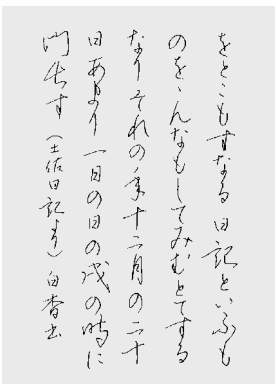 をとこもすなる日記といふも
のをゝんなもしてみむとてする
なりそれの年十二月の二十
日あまり一日の日の戌の時に
門出す（土佐日記より）白杳書